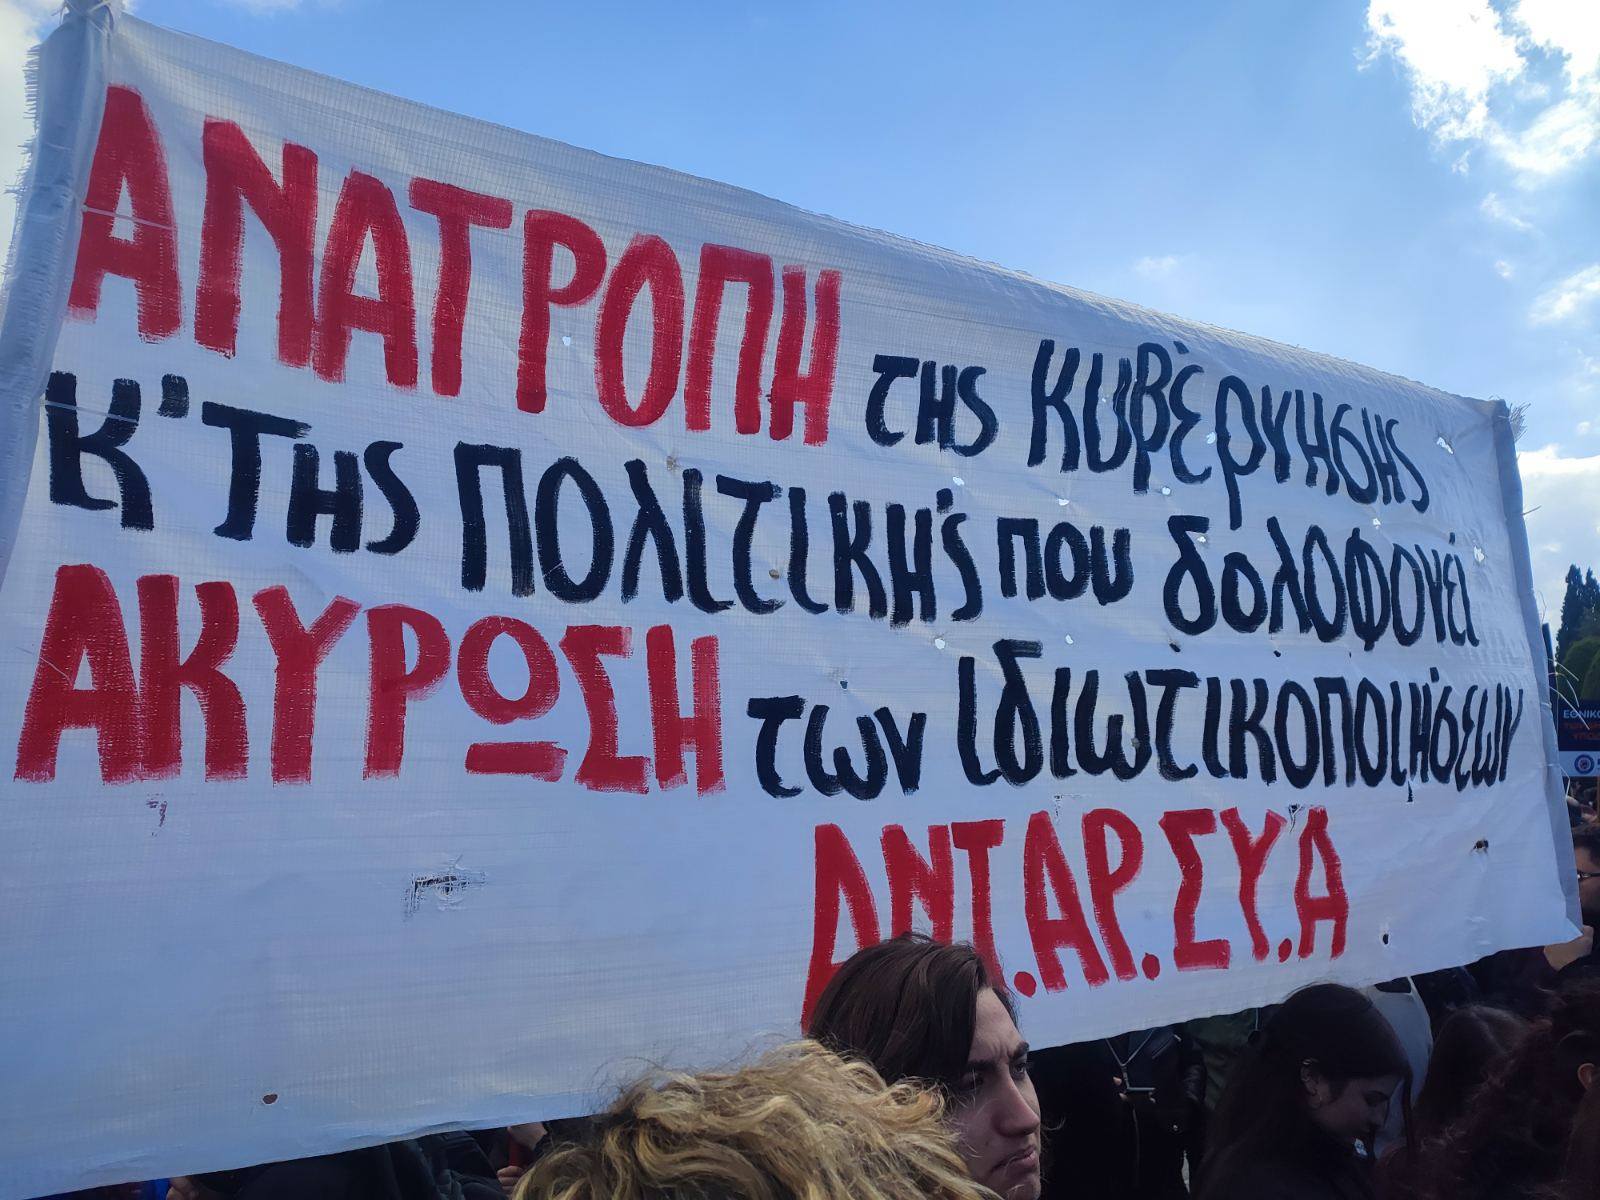 ΑΝΑΤΡΟΠΗ της κυβέρνησης
Κ' Της Πολιτικής που δολοφονεί
ΑΚΥΡΩΣΗ των ιδιωτικοποιήσεων
ΑΝΤ.ΑΡ.ΣΥ.Α